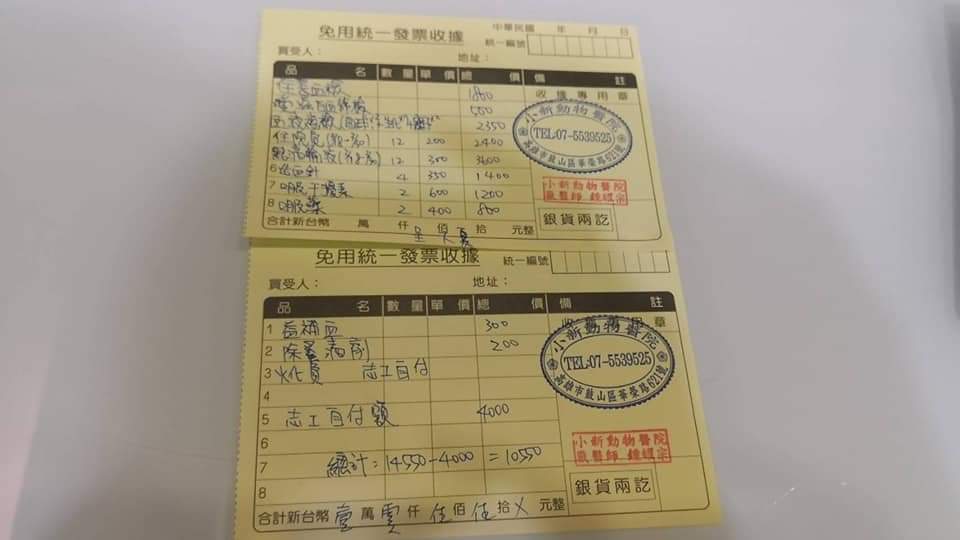 中華民國 年 月 日
免用統一發票收據 統一編號
買受人： 地址：
品 名 數量 單價 總 價 備 註
全套血檢 1800 收據專用章
550
2350
住院費 12 200 2400
12 300 3600
6 止血針 4 350 1400
7 口服干擾素 2 600 1200
8 口服藥 2 400 800
小新動物醫院
TEL:07-5539525
高雄市鼓山區華榮路621號
小新動物醫院
獸醫師
銀貨兩訖
合計新台幣 萬 仟 佰 拾 元整
免用統一發票收據 統一編號
買受人： 地址：
品 名 數量 單價 總 價 備 註
1 益補血 300
2 除蚤滴劑 200
3 火化費 志工自付
4
5 志工自付額 4000
6
7 總計：14550-4000 = 10550
8
小新動物醫院
TEL:07-5539525
高雄市鼓山區華榮路621號
小新動物醫院
獸醫師
銀貨兩訖
合計新台幣 壹 萬 零 仟 伍 佰 伍 拾 X 元整